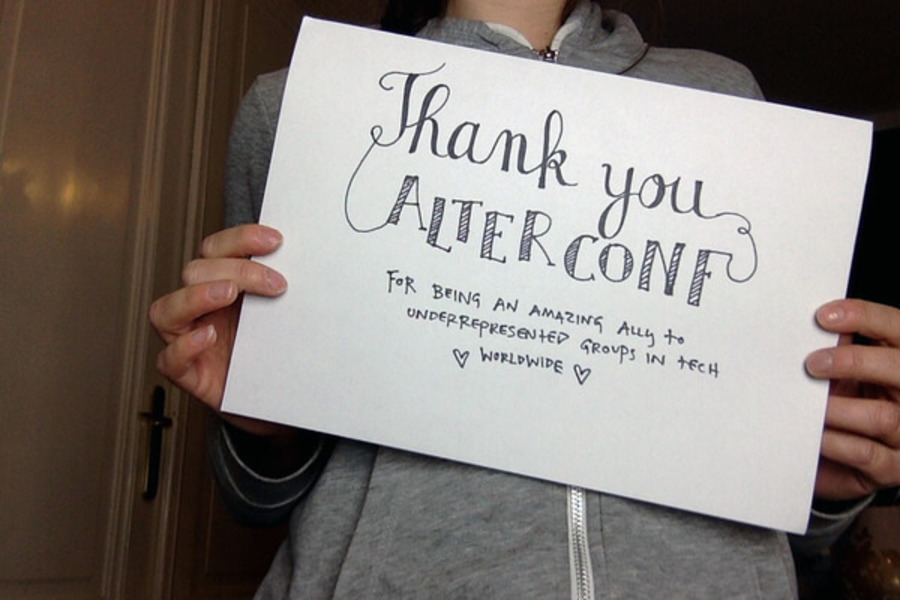 Thank you
ALTERCONF
FOR BEING AN AMAZING ALLY to
UNDERREPRESENTED GROUPS IN tECH
♡ WORLDWIDE ♡